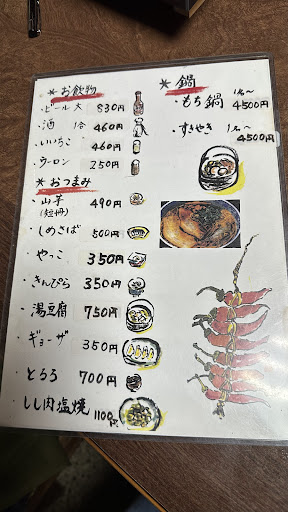 * お飲物
・ビール 大 830円
・酒 1合 460円
・いいちこ 460円
・ウーロン 250円
* おつまみ
・山芋 490円
(短冊)
・しめさば 500円
・やっこ 350円
・きんぴら 350円
・湯豆腐 750円
・ギョーザ 350円
・とろろ 700円
・しし肉塩焼 1100円
* 鍋
・もち鍋 1名〜 4500円
・すきやき 1名〜 4500円